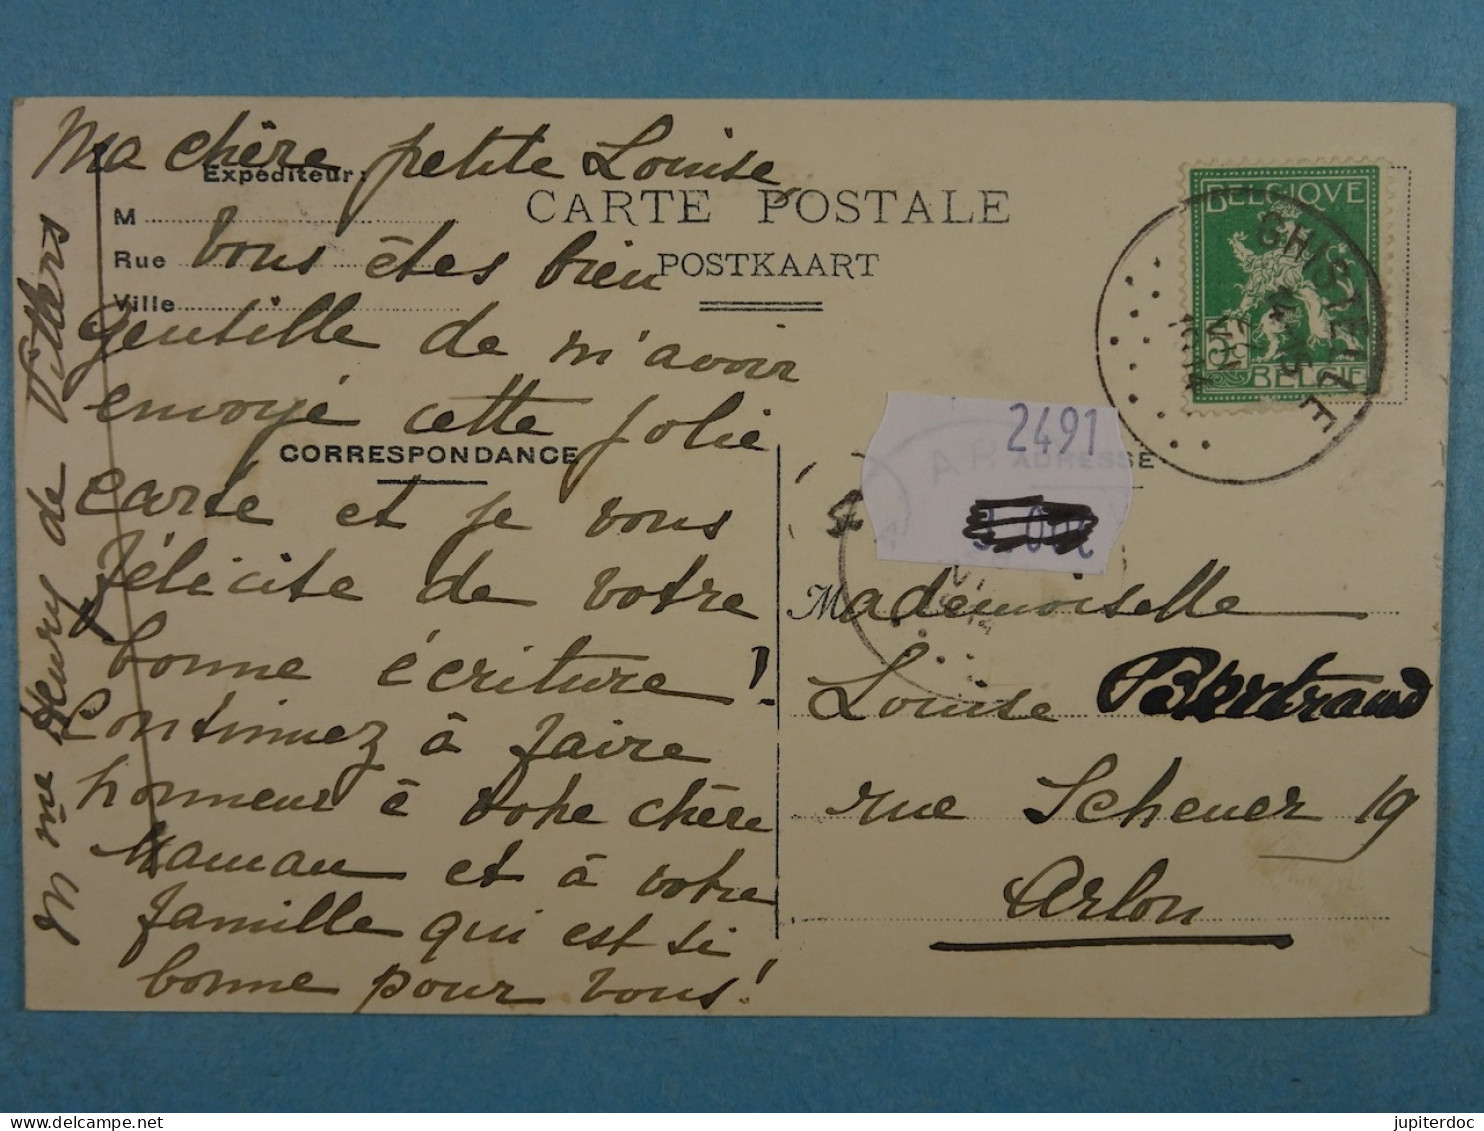 Ma chère petite Louise,
Expéditeur:
M
Rue
Ville
CARTE POSTALE
POSTKAART
Vous êtes bien
gentille de m'avoir
envoyé cette jolie
CORRESPONDANCE
carte et je vous
félicite de votre
bonne écriture!
Continuez à faire
honneur à votre chère
Maman et à votre
famille qui est si
bonne pour vous!
Mme Henry de Vitters
BELGIQVE
BELGIE
GHISTELLE
2491
ADRESSE
3.00€
Mademoiselle
Louise Bertrand
rue Scheuer 19
Arlon
jupiterdoc